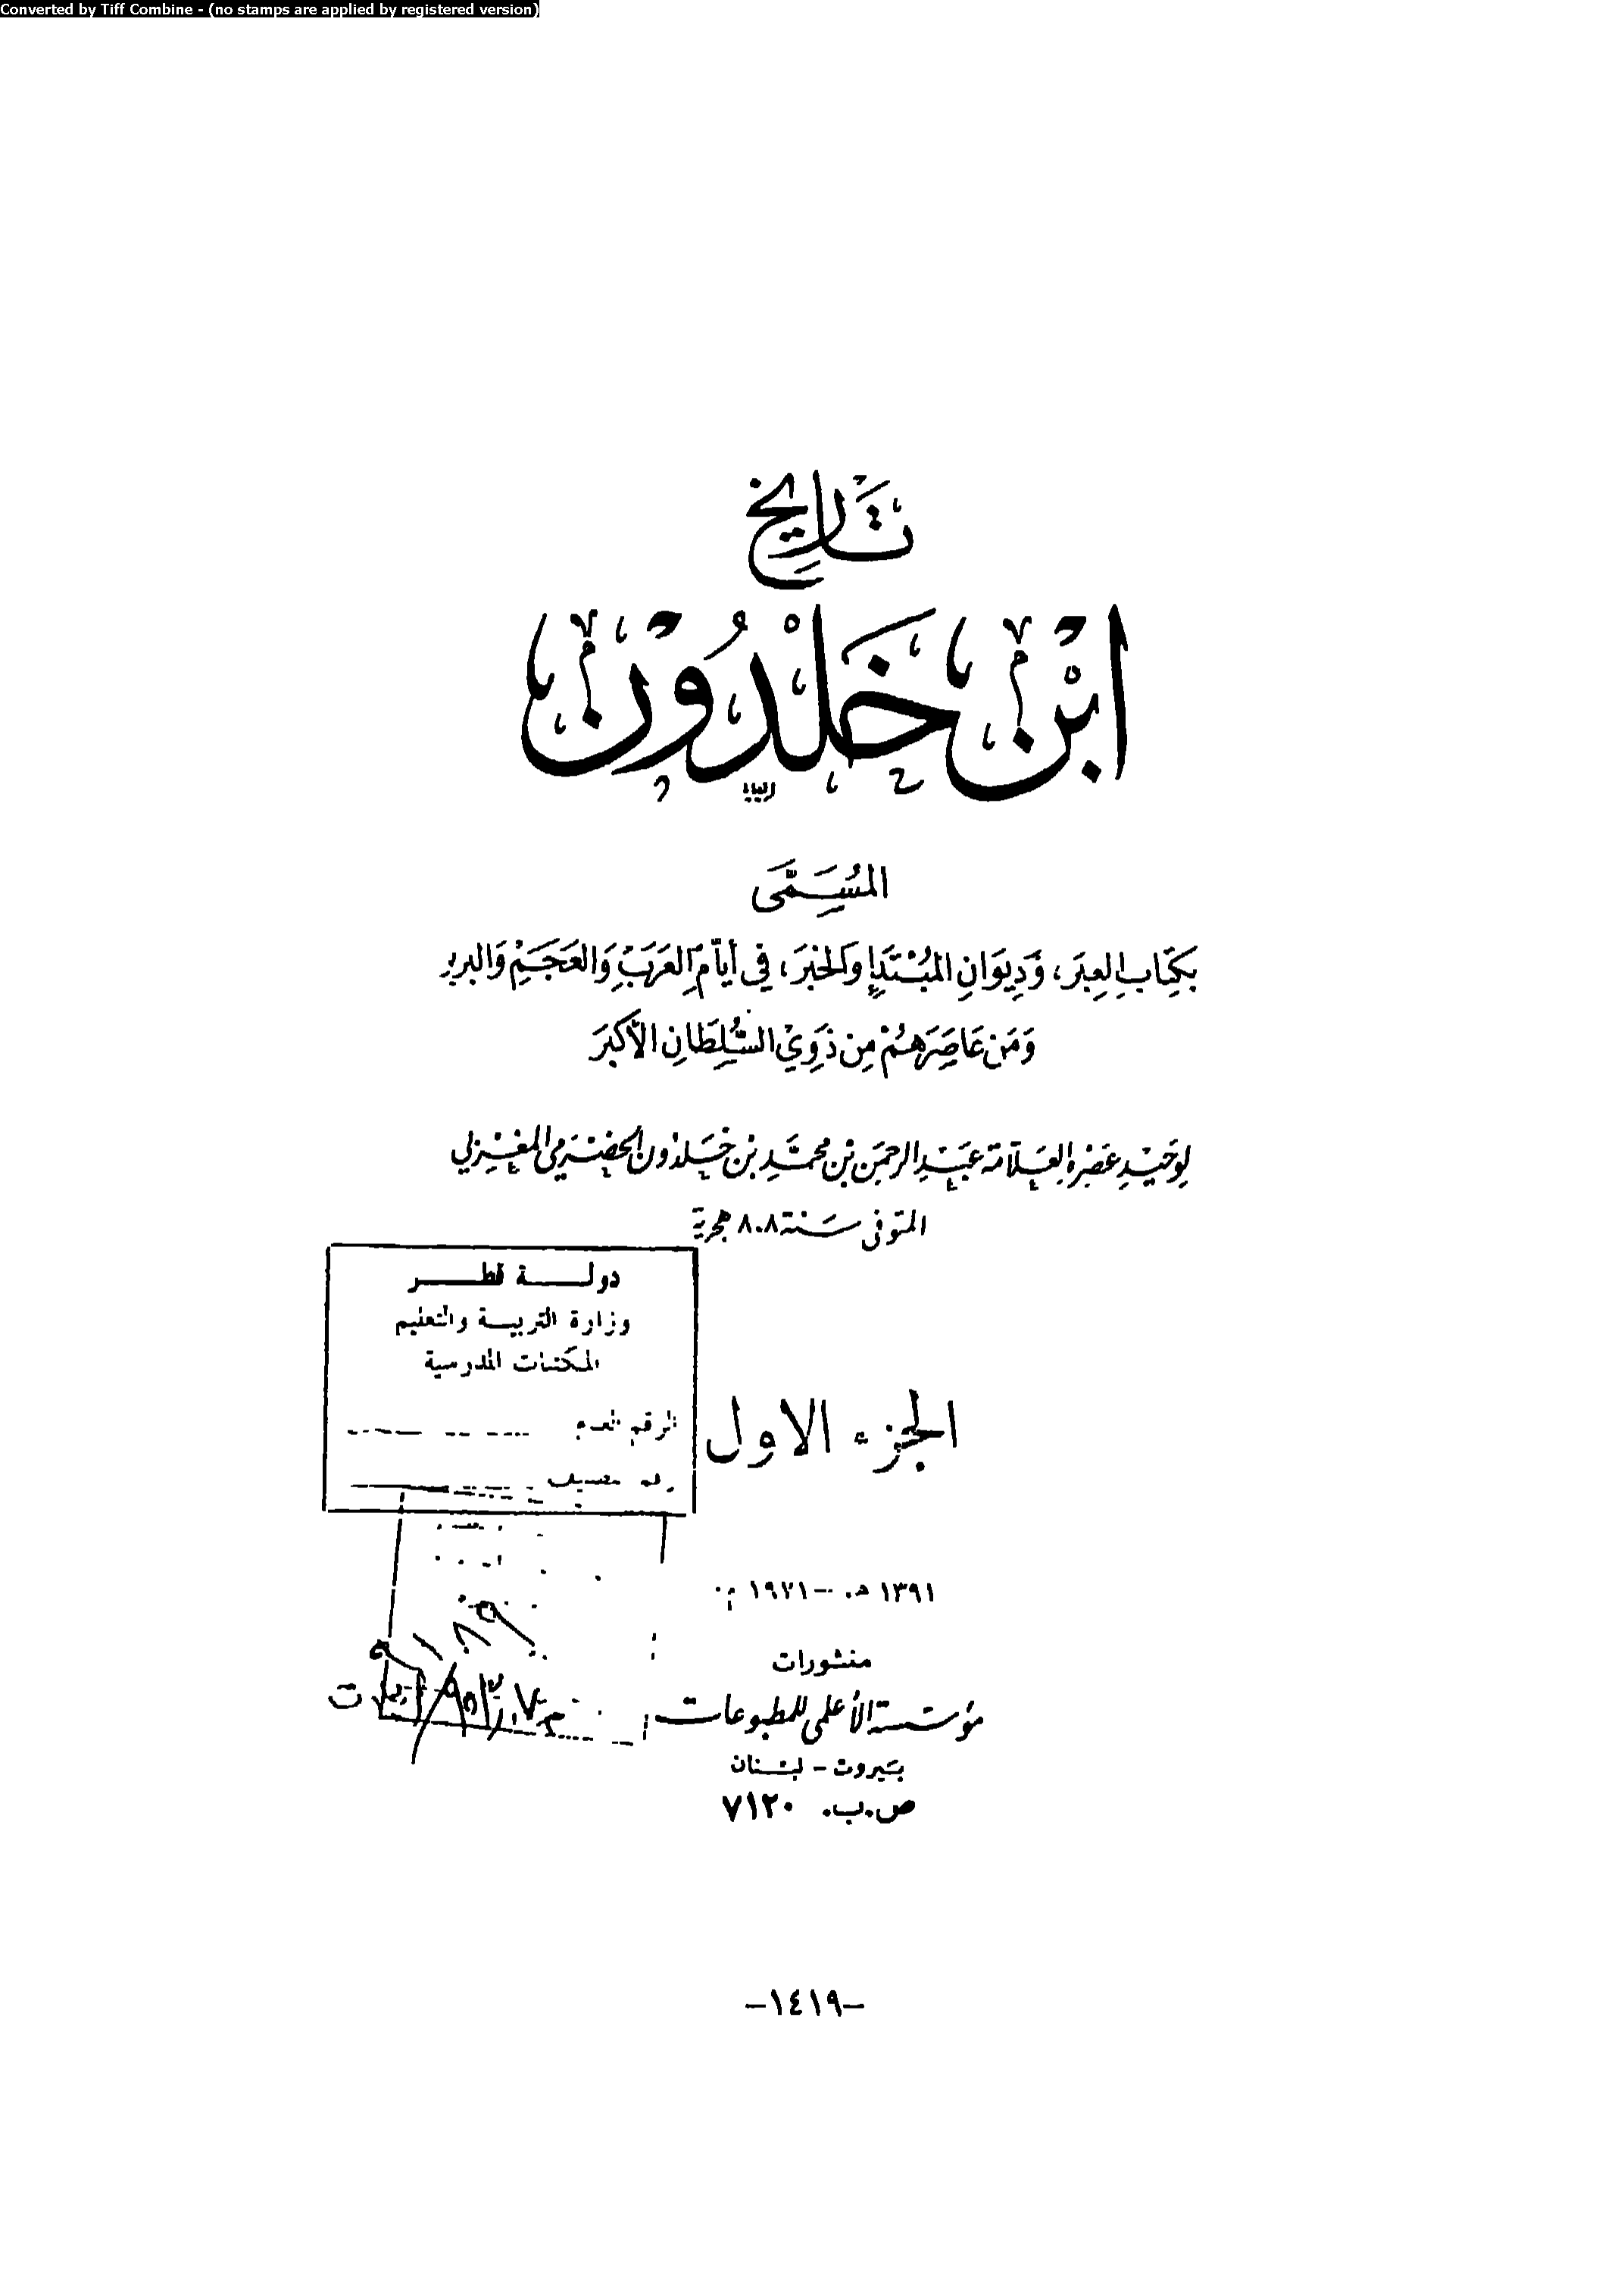 Converted by Tiff Combine - (no stamps are applied by registered version)
تَاريخ
ابْن خَلْدُوْن
المُسَمَّى
بكِتَابِ العِبَر، وَدِيوَانِ المُبْتَدَإِ وَالخَبَر، في أيَّامِ العَرَبِ وَالعَجَمِ وَالبربر
وَمَن عَاصَرَهُمْ مِن ذَوِيْ السُّلطَانِ الأكبَر
لوَحيد عَصْره العَلّامَة عَبْد الرحمَن بْن محمَّد بن خَلدُون الحَضْرَمي المَغْربي
المتوفى سَنة ٨٠٨ هجرية
دولة قطر
وزارة التربية والتعليم
المكتبات المدرسية
الرقم العام
الجزء الاول
١٣٩١ هـ. – ١٩٧١ م.
منشورات
مؤسسة الأعلمي للمطبوعات
بَيروت - لبنان
ص.ب. ٧١٢٠
-١٤١٩-